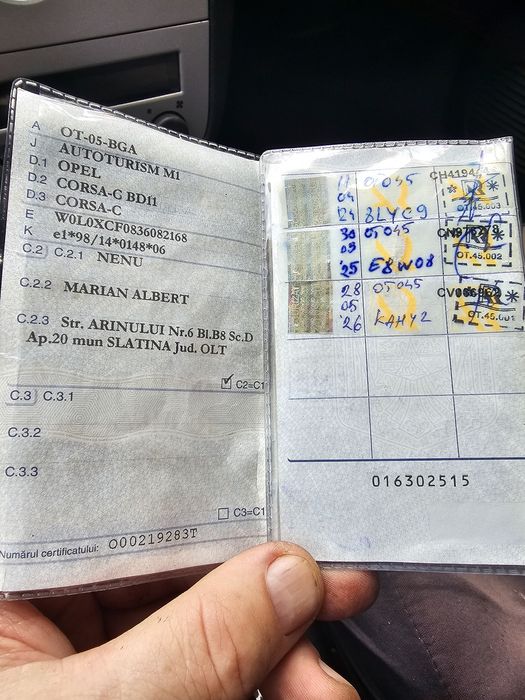 A OT-05-BGA
J AUTOTURISM M1
D.1 OPEL
D.2 CORSA-C BD11
D.3 CORSA-C
E W0L0XCF0836082168
K e1*98/14*0148*06
C.2 C.2.1 NENU
C.2.2 MARIAN ALBERT
C.2.3 Str. ARINULUI Nr.6 Bl.B8 Sc.D
Ap.20 mun SLATINA Jud. OLT
C2=C1
C.3 C.3.1
C.3.2
C.3.3
C3=C1
Numărul certificatului: O00219283T
11 OT045 CH4194
04 R
'24 8LYC9 OT.45.003
30 OT045
03 R
'25 E8W08 OT.45.002
28 OT045
05 R
'26 KAHY2 OT.45.001
016302515